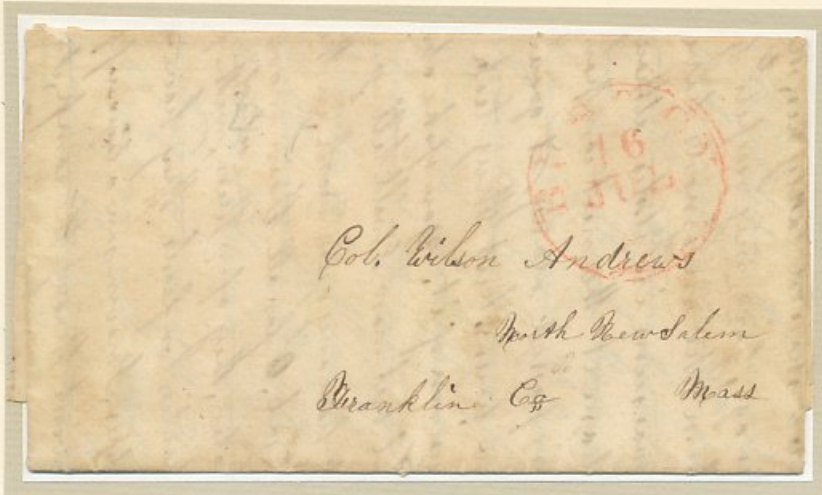 16
JUL
Col. Wilson Andrews
North New Salem
Franklin Co Mass